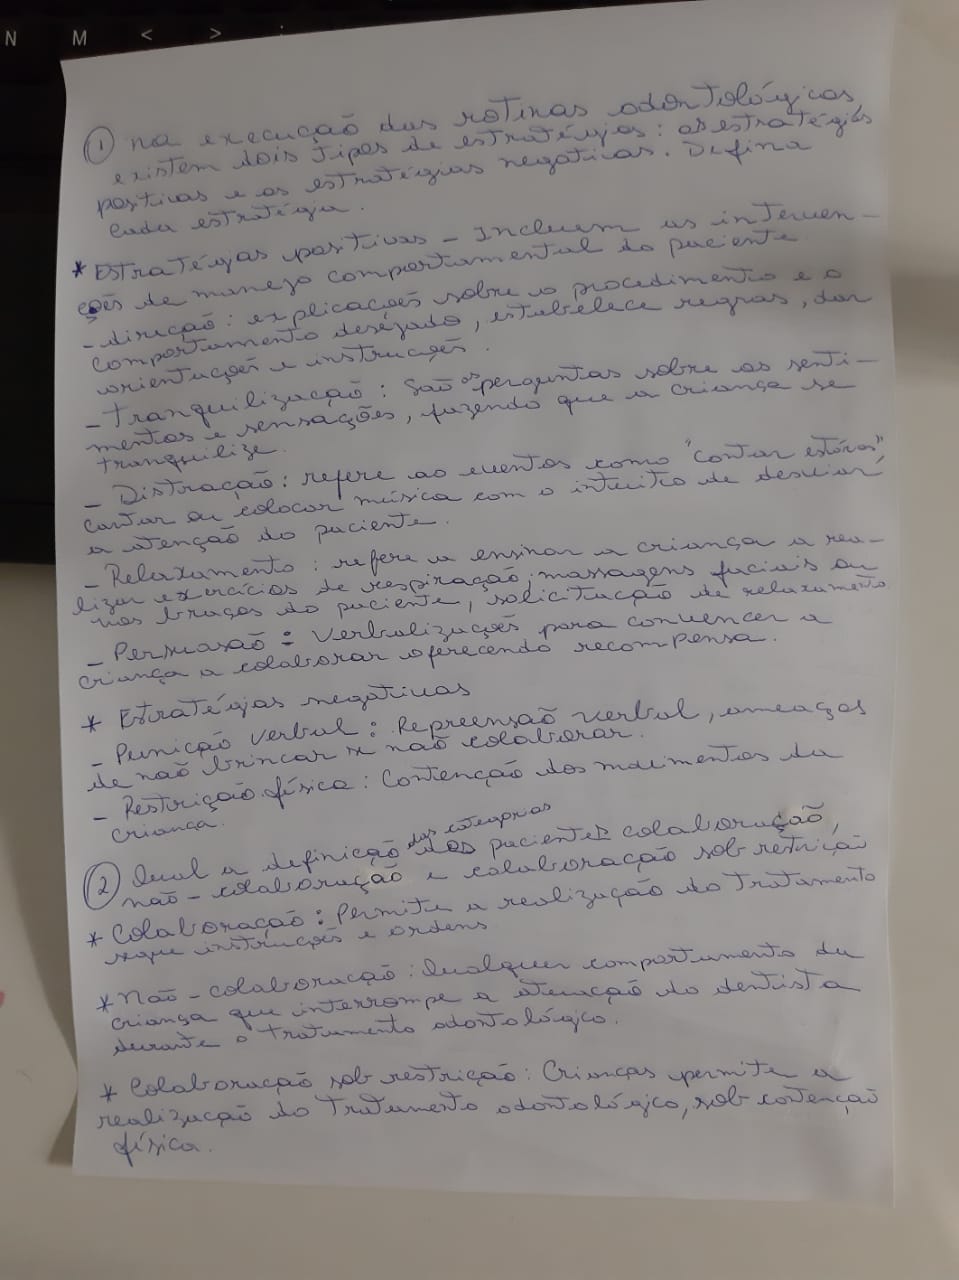 N M < > ;
① Na execução das rotinas odontológicas,
existem dois tipos de estratégias: as estratégias
positivas e as estratégias negativas. Defina
cada estratégia.
* Estratégias positivas - Incluem as interven-
ções de manejo comportamental do paciente
- direção: explicações sobre o procedimento e o
comportamento desejado, estabelece regras, dar
orientações e instruções.
- Tranquilização: São as perguntas sobre os senti-
mentos e sensações, fazendo que a criança se
tranquilize.
- Distração: refere ao eventos como "contar estórias"
cantar ou colocar música com o intuito de desviar
a atenção do paciente.
- Relaxamento: refere a ensinar a criança a rea-
lizar exercícios de respiração, massagens faciais ou
nos braços do paciente, solicitação de relaxamento
- Persuasão: Verbalizações para convencer a
criança a colaborar oferecendo recompensa.
* Estratégias negativas
- Punição verbal: Repreensão verbal, ameaças
de não brincar se não colaborar.
- Restrição física: Contenção dos movimentos da
criança.
② Qual a definição das categorias dos pacientes colaboração,
não-colaboração e colaboração sob restrição
* Colaboração: Permite a realização do tratamento
segue instruções e ordens
* Não-colaboração: Qualquer comportamento da
criança que interrompe a atenção do dentista
durante o tratamento odontológico.
* Colaboração sob restrição: Crianças permite a
realização do tratamento odontológico, sob contenção
física.